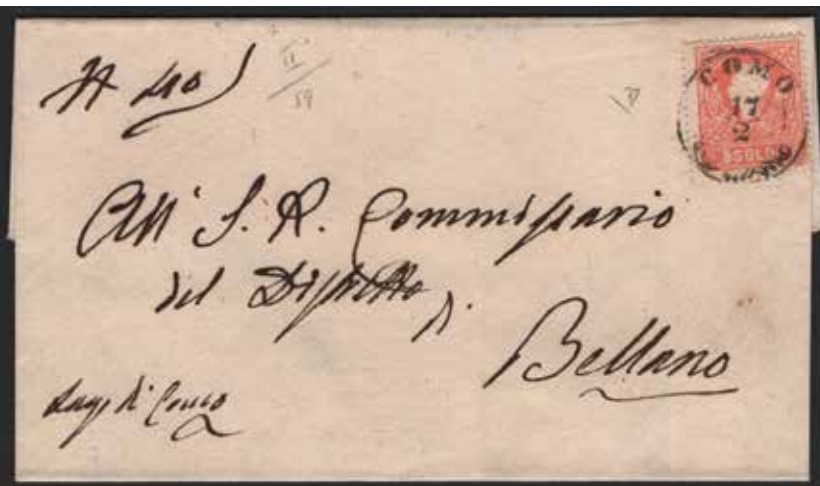 N 40
II
59
COMO
17
2
5 SOLDI
All' I. R. Commissario
del Distretto di
Bellano
Lago di Como